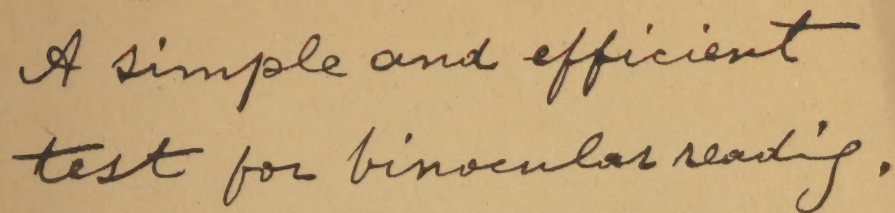 A simple and efficient
test for binocular reading.